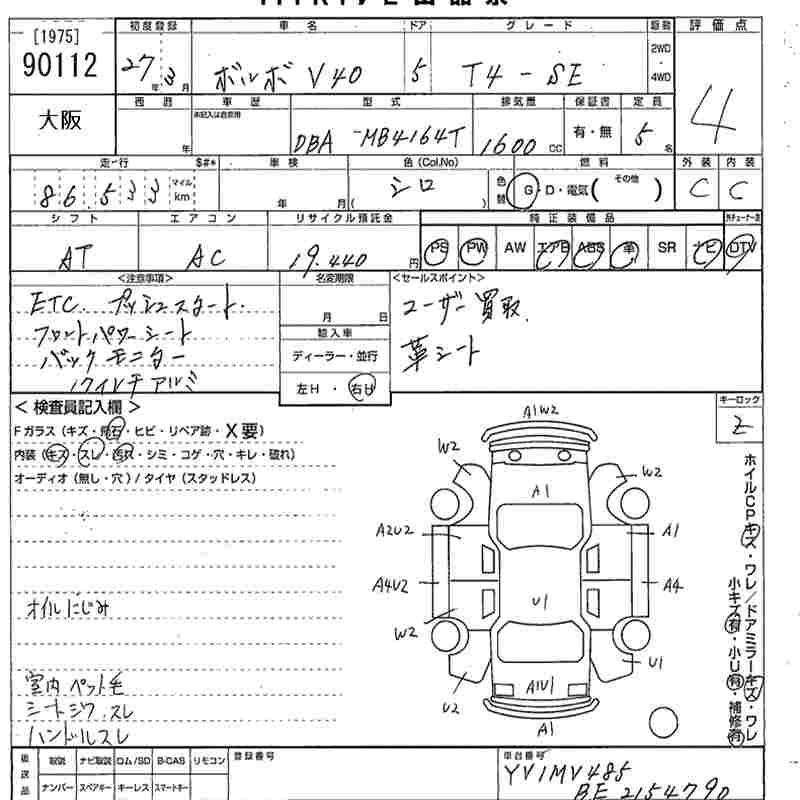 [1975]
90112
大阪
初度登録 車名 ドア グレード 駆動 評価点
27年3月 ボルボ V40 5 T4-SE 2WD・4WD 4
西暦 車歴 型式 排気量 保証書 定員
年 未記入は自家用 DBA-MB4164T 1600cc 有・無 5名
走行 $#* 車検 色(Col.No) 燃料 外装 内装
86,533 マイル km 年 月 シロ ( ) 色替 G・D・電気( その他 ) C C
シフト エアコン リサイクル預託金 純正装備品
AT AC 19,440円 PS PW AW エアB ABS 革 SR ナビ DTV
<注意事項> 名変期限 <セールスポイント>
ETC. プッシュスタート.
フロントパワーシート 月 日 ユーザー買取.
バックモニター 輸入車
ディーラー・並行 革シート
左H・右H
<検査員記入欄> キーロック
Fガラス(キズ・飛石・ヒビ・リペア跡・X要) 2
内装(キズ・スレ・汚れ・シミ・コゲ・穴・キレ・破れ)
オーディオ(無し・穴)/タイヤ(スタッドレス)
A1W2
W2 W2
A1
A2U2 A1
A4U2 A4
U1
W2
U1
U2 A1U1
A1
ホイルCPキズ・ワレ/ドアミラーキズ・ワレ
小キズ有・小U有・補修有
オイルにじみ
室内 ペット毛
シートシワ スレ
ハンドルスレ
後送品 取説 ナビ取説 ロム/SD B-CAS リモコン 登録番号 車台番号
ナンバー スペアキー キーレス スマートキー YV1MV485
BE2154790